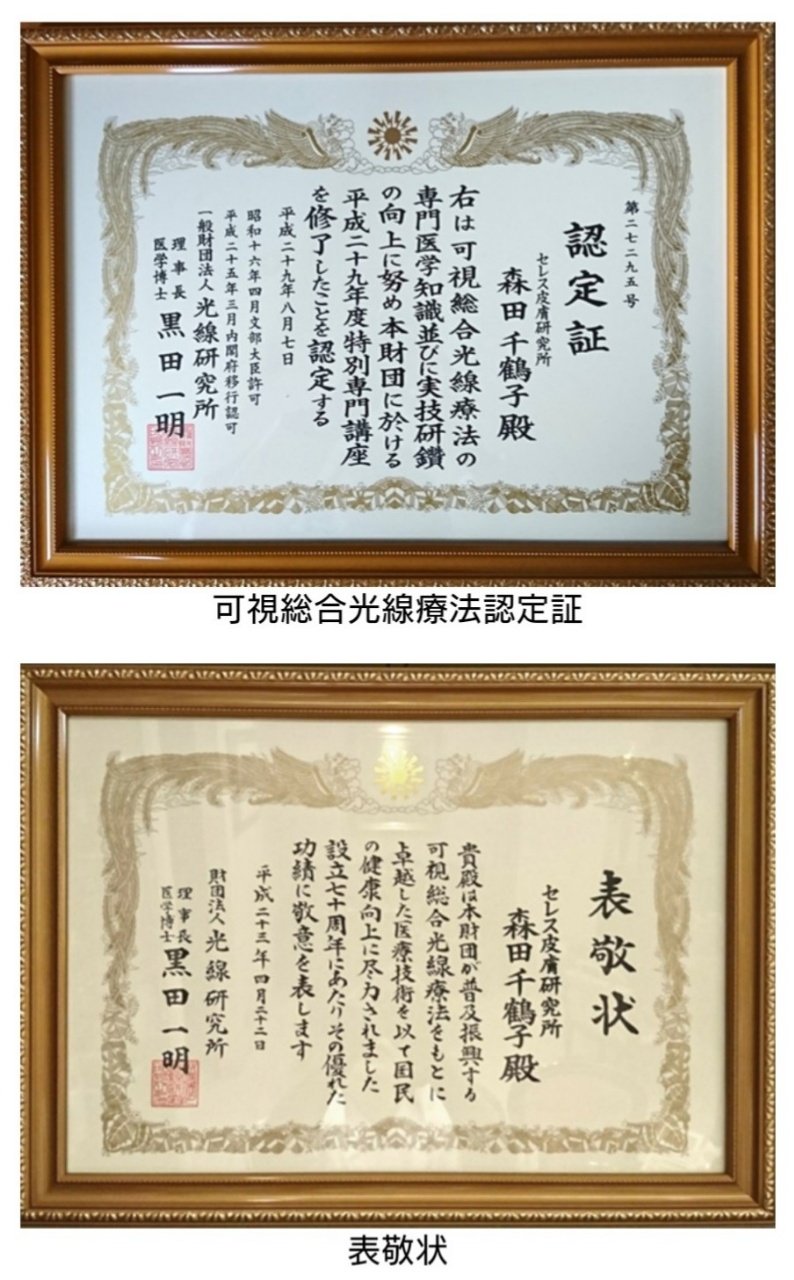 第二七二九五号
認定証
セレス皮膚研究所
森田千鶴子殿
右は可視総合光線療法の
専門医学知識並びに実技研鑽
の向上に努め本財団に於ける
平成二十九年度特別専門講座
を修了したことを認定する
平成二十九年八月七日
昭和十六年四月文部大臣許可
平成二十五年三月内閣府移行認可
一般財団法人 光線研究所
理事長
医学博士
黒田一明
可視総合光線療法認定証
表敬状
セレス皮膚研究所
森田千鶴子殿
貴殿は本財団が普及振興する
可視総合光線療法をもとに
卓越した医療技術を以て国民
の健康向上に尽力されました
設立七十周年にあたりその優れた
功績に敬意を表します
平成二十三年四月二十二日
財団法人 光線研究所
理事長
医学博士
黒田一明
表敬状